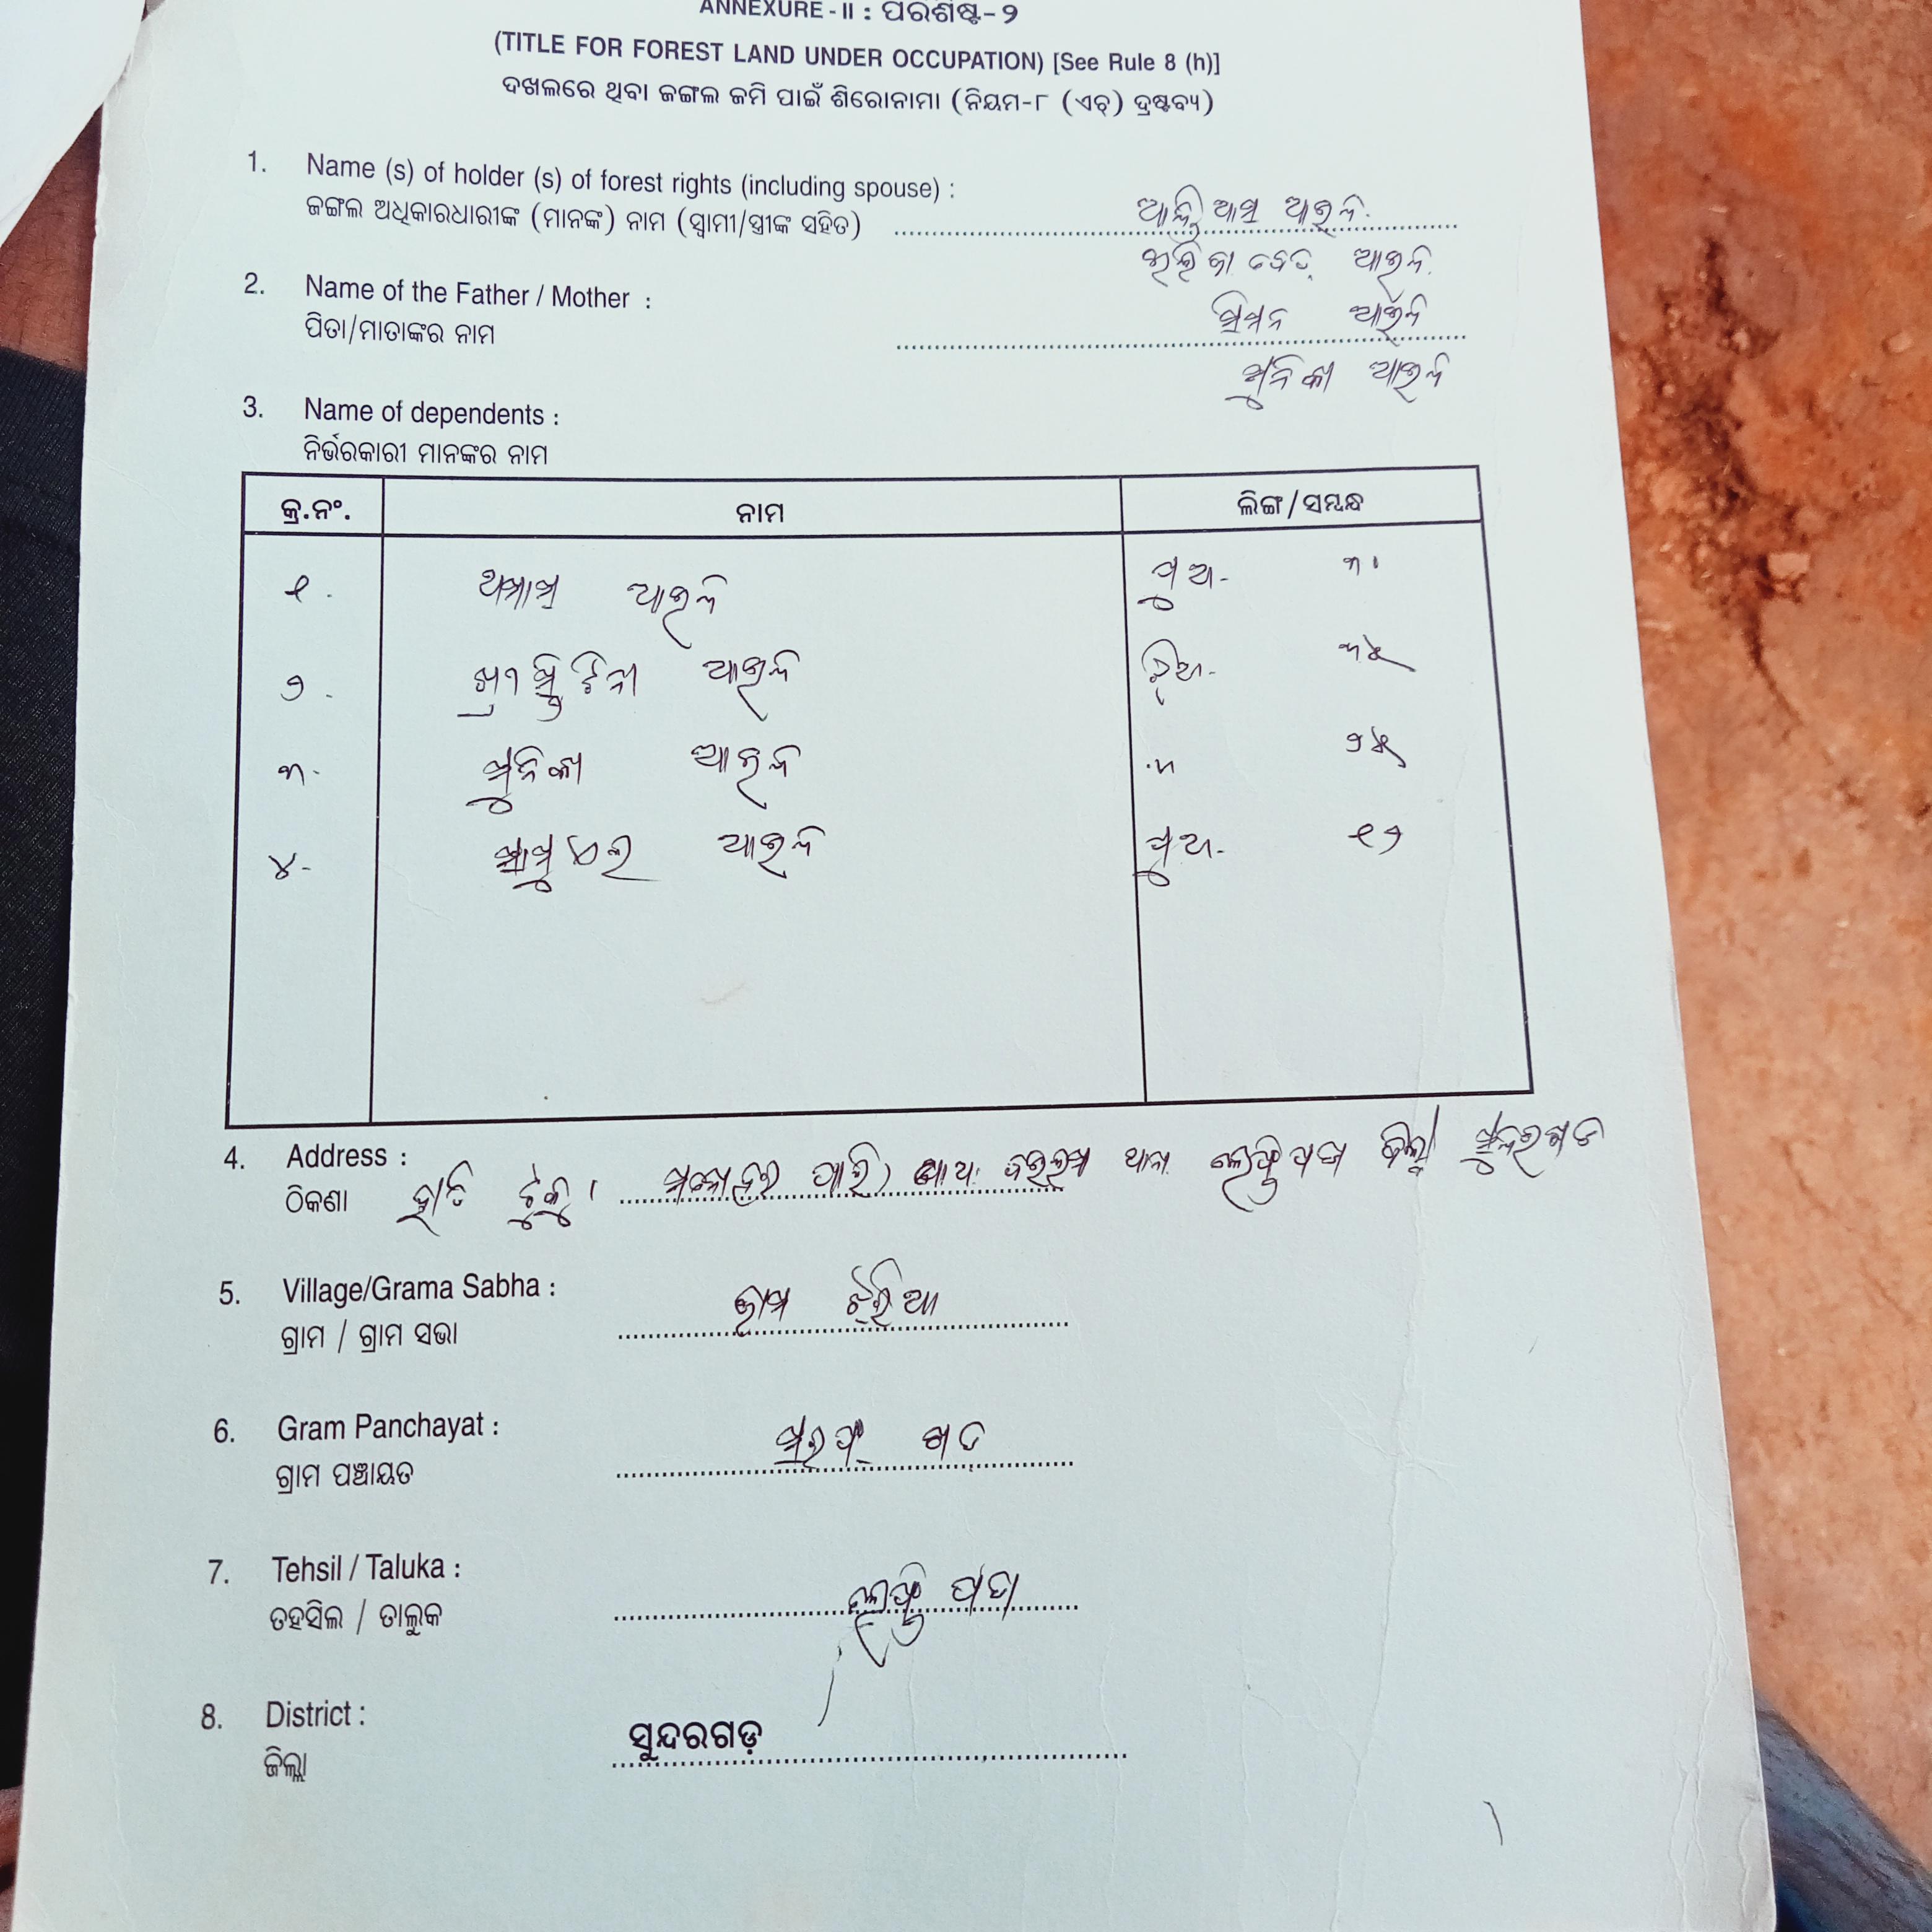 ANNEXURE - II : ପରିଶିଷ୍ଟ-୨
(TITLE FOR FOREST LAND UNDER OCCUPATION) [See Rule 8 (h)]
ଦଖଲରେ ଥିବା ଜଙ୍ଗଲ ଜମି ପାଇଁ ଶିରୋନାମା (ନିୟମ-୮ (ଏଚ୍) ଦ୍ରଷ୍ଟବ୍ୟ)
1. Name (s) of holder (s) of forest rights (including spouse) :
ଜଙ୍ଗଲ ଅଧିକାରଧାରୀଙ୍କ (ମାନଙ୍କ) ନାମ (ସ୍ୱାମୀ/ସ୍ତ୍ରୀଙ୍କ ସହିତ) ଆଇନ୍ଦ
ଆଇନ୍ଦ
2. Name of the Father / Mother : ଆଇନ୍ଦ
ପିତା/ମାତାଙ୍କର ନାମ
ମୁନିକା ଆଇନ୍ଦ
3. Name of dependents :
ନିର୍ଭରକାରୀ ମାନଙ୍କର ନାମ
କ୍ର.ନଂ. ନାମ ଲିଙ୍ଗ/ସମ୍ବନ୍ଧ
୧. ଥମାସ ଆଇନ୍ଦ ପୁଅ-
୨. ଆଇନ୍ଦ ଝିଅ- ୩୫
୩. ମୁନିକା ଆଇନ୍ଦ ୨୫
୪- ସାମୁଏଲ ଆଇନ୍ଦ ପୁଅ- ୧୨
4. Address :
ଠିକଣା ହାତି ଟୁକୁ। ଥାନା ଜିଲ୍ଲା ସୁନ୍ଦରଗଡ
5. Village/Grama Sabha : ଝରିଆ
ଗ୍ରାମ / ଗ୍ରାମ ସଭା
6. Gram Panchayat : ସରଫ୍ ଗଡ
ଗ୍ରାମ ପଞ୍ଚାୟତ
7. Tehsil / Taluka : ଲେଫ୍ରିପଡା
ତହସିଲ / ତାଲୁକ
8. District : ସୁନ୍ଦରଗଡ଼
ଜିଲ୍ଲା